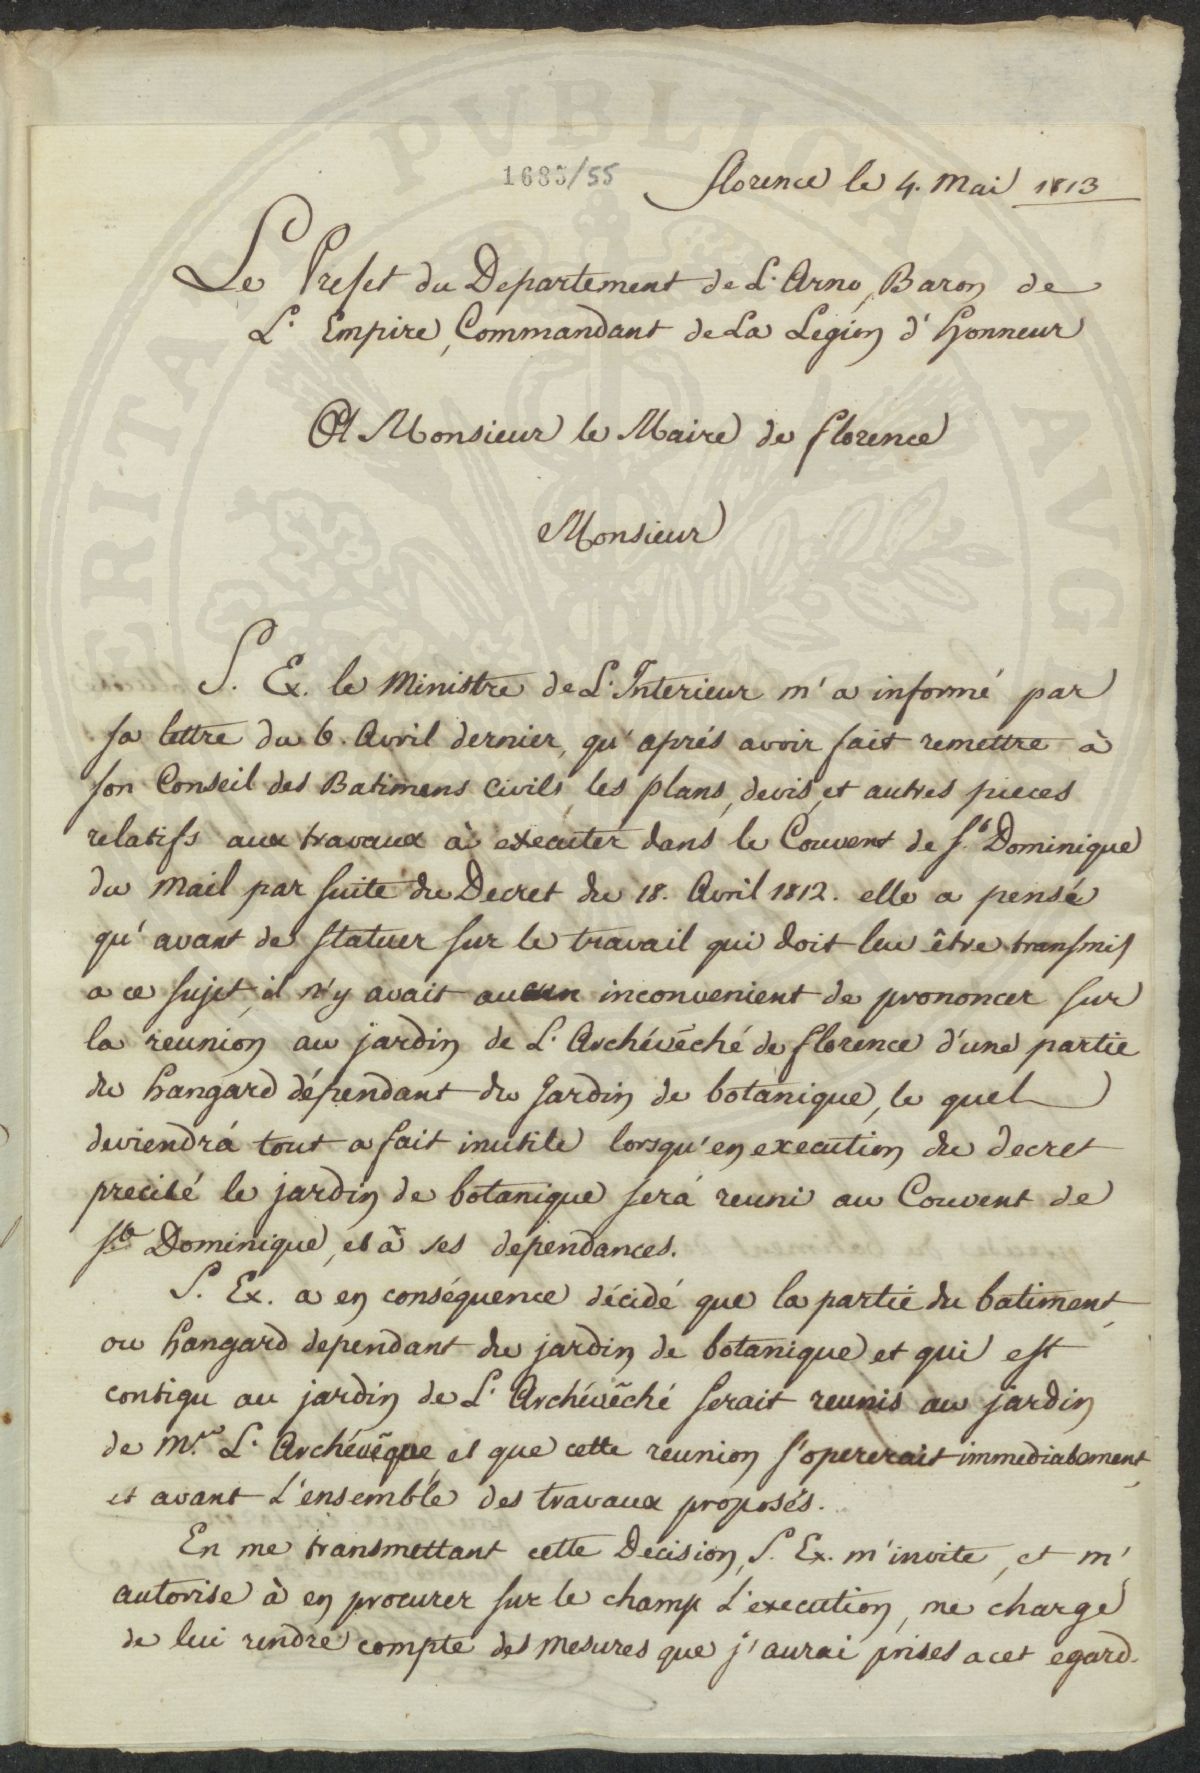 1685/55
florence le 4. Mai 1813
Le Prefet du Departement de L'Arno, Baron de
L'Empire, Commandant de La Legion d'honneur
A Monsieur le Maire de florence
Monsieur
S. Ex. le Ministre de L'Interieur m'a informé par
sa lettre du 6. Avril dernier, qu'aprés avoir fait remettre à
son Conseil des Batimens Civils, les plans, devis, et autres pieces
relatifs aux travaux à executer dans le Couvent de St. Dominique
du Mail par suite du Decret du 18. Avril 1812. elle a pensé
qu'avant de statuer sur le travail qui doit lui être transmis
a ce sujet, il n'y avait aucun inconvenient de prononcer sur
la reunion au jardin de L'Archévêché de florence d'une partie
du hangard dépendant du Jardin de botanique, le quel
deviendrá tout a fait inutile lorsqu'en execution du decret
precité le jardin de botanique será reuni au Couvent de
St. Dominique, et à ses dépendances.
S. Ex. a en conséquence décidé que la partie du batiment,
ou hangard dependant du jardin de botanique et qui est
contigu au jardin de L'Archévêché serait reunis au jardin
de Mr. L'Archévêque, et que cette reunion s'opererait immediatement,
et avant L'ensemble des travaux proposés.
En me transmettant cette Decision, S. Ex. m'invite, et m'
autorise à en procurer sur le champ L'execution, me charge
de lui rendre compte des mesures que j'aurai prises a cet egard.
PVBLICA
ERITA
AVG